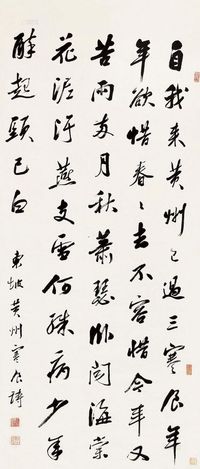 自我来黄州已過三寒食年
年欲惜春々去不容惜今年又
苦雨兩月秋蕭瑟卧聞海棠
花泥汙燕支雪何殊病少年
醉起頭已白
東坡黄州寒食詩